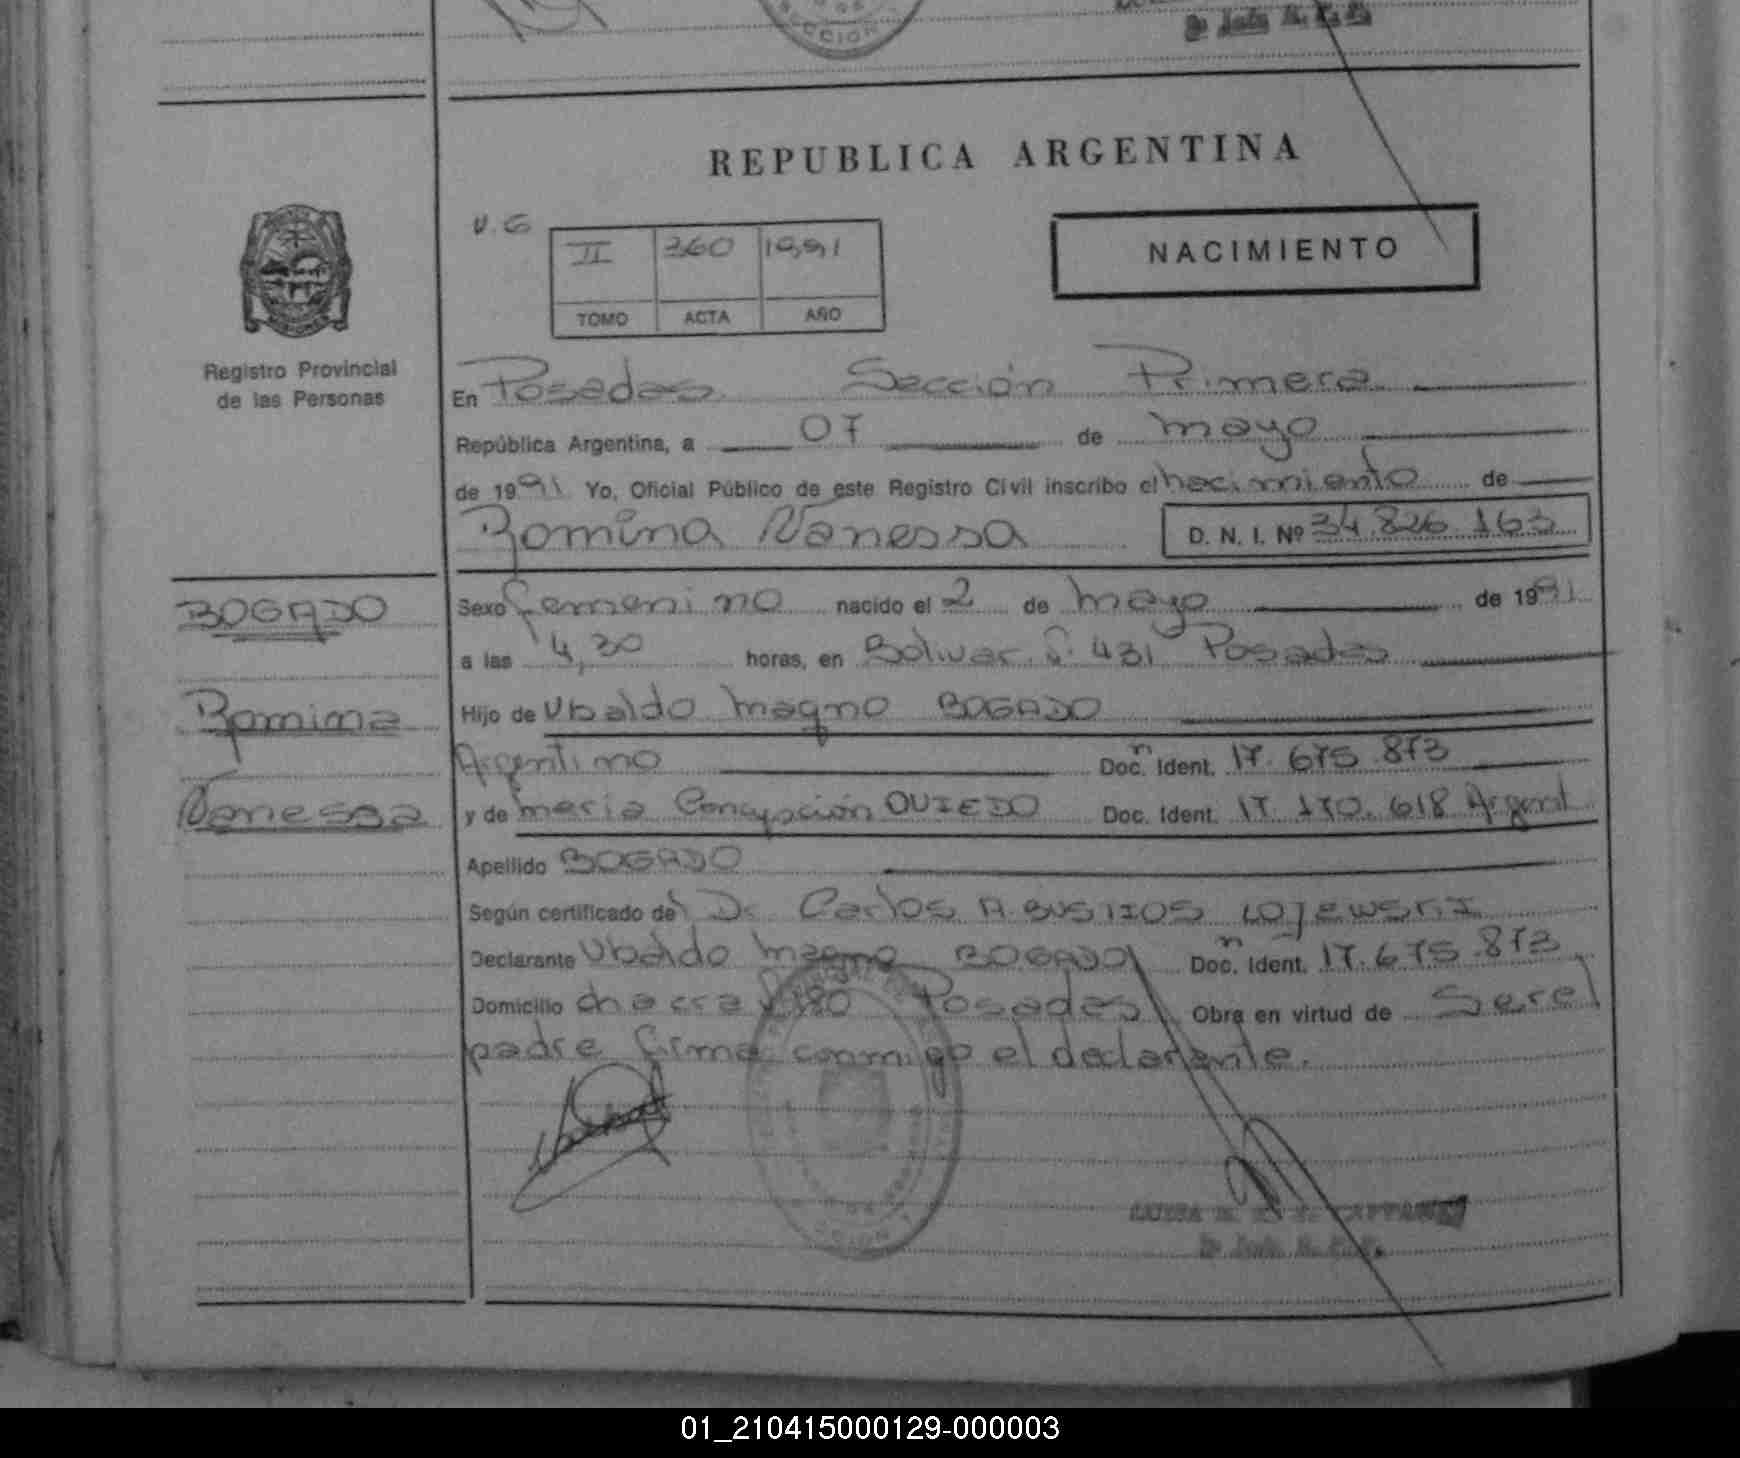 REPUBLICA ARGENTINA
NACIMIENTO
II 360 1991
TOMO ACTA AÑO
Registro Provincial
de las Personas
En Posadas Sección Primera
República Argentina, a 07 de mayo
de 1991 Yo, Oficial Público de este Registro Civil inscribo el nacimiento de
Romina Vanessa D. N. I. Nº 34.826.163
BOGADO
Romina
Vanessa
Sexo femenino nacido el 2 de mayo de 1991
a las 4,30 horas, en Bolivar 431 Posadas
Hijo de Ubaldo Magno BOGADO
Argentino Doc. Ident. 17.675.873
y de maria Concepción OVIEDO Doc. Ident. 17.170.618 Argent
Apellido BOGADO
Según certificado del Dr Carlos A. BUSTIOS
Declarante Ubaldo Magno BOGADO Doc. Ident. 17.675.873
Domicilio chacra 180 Posadas Obra en virtud de Ser el
padre firma conmigo el declarante.
01_210415000129-000003